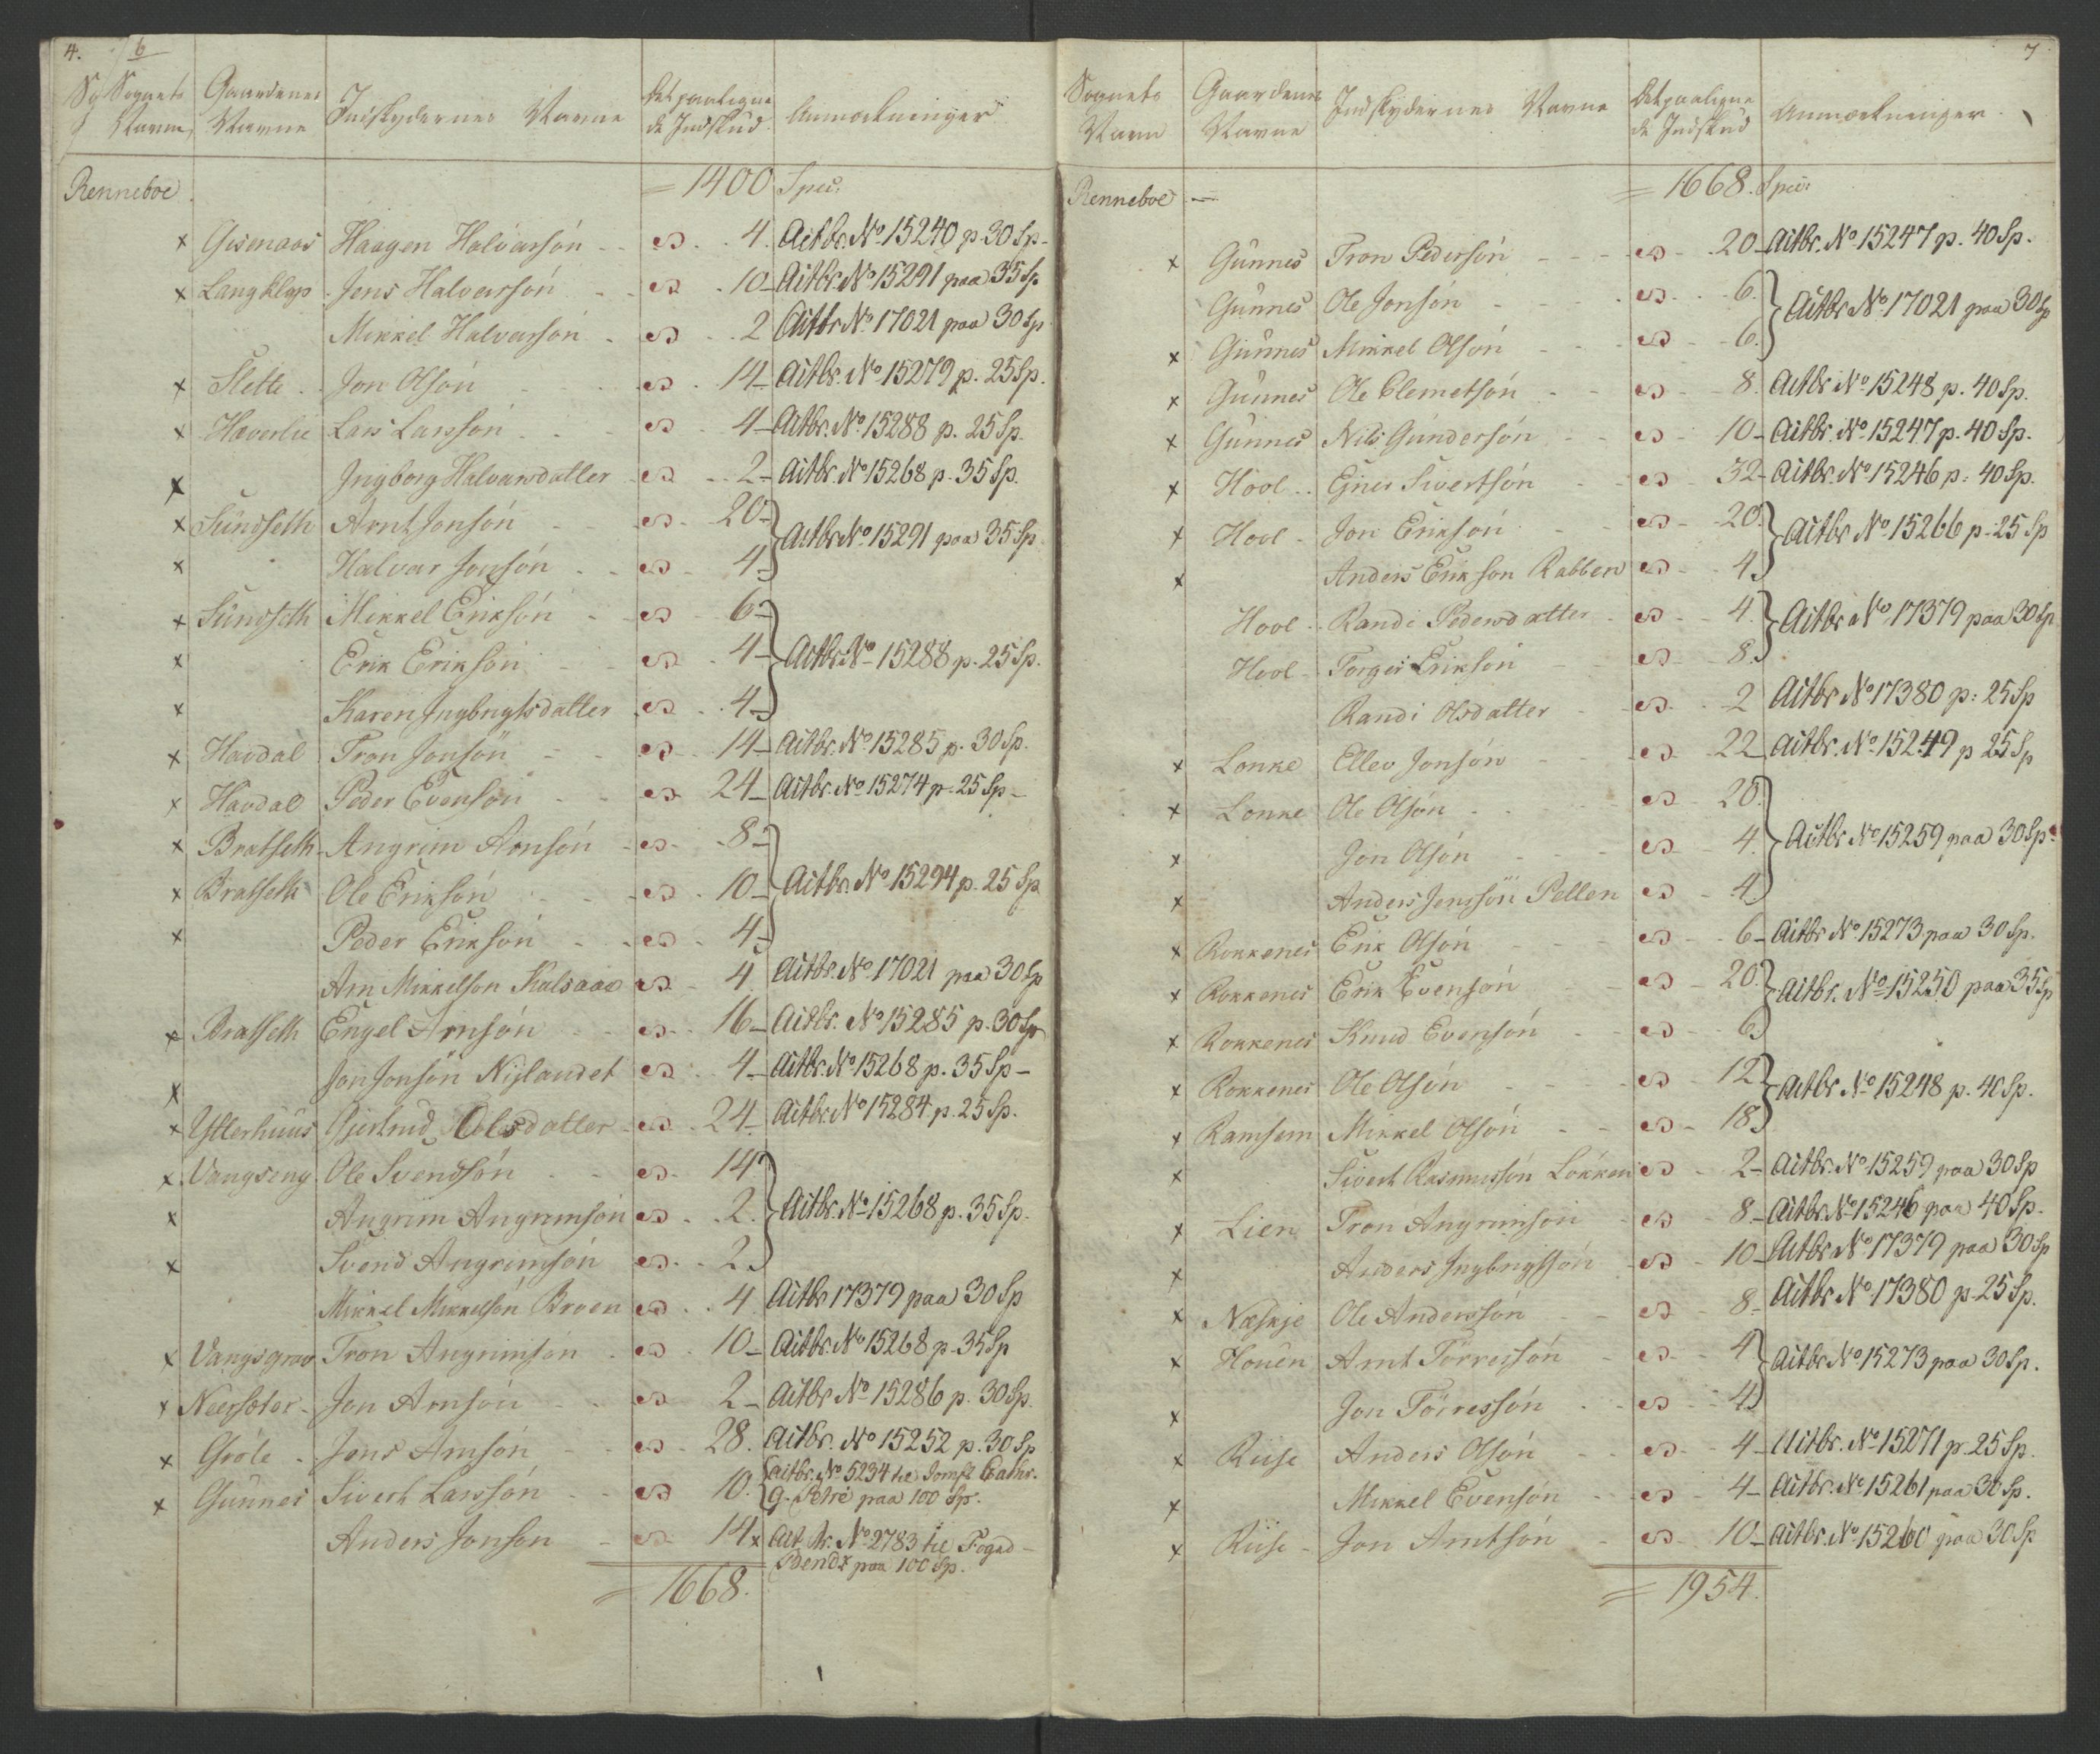 4. 6
Sognets Navn Gaardenes Navne Indskydernes Navne Det paaligne de Indskud Anmærkninger
Renneboe = 1400 Spec:
x Gisenaas Haagen Halvarsón - - 4. Actbr. No 15240 p. 30 Sp.
x Langklop Jens Halvarsón - - 10 Aitbr. No 15291 paa 35 Sp
Mikkel Halvarsón - - 2 Aitbr No 17021 paa 30 Sp
x Slette - Jon Olsón - - 14 Aitbr. No 15279 p. 25 Sp.
x Hæverlie Lars Larssón - - 4 Aitbr. No 15288 p. 25 Sp.
x Ingborg Halvarsdatter - - 2 Aitbr. No 15268 p. 35 Sp.
x Sundseth Arnt Jonsón - - 20
x Halvar Jonsón - - 4 } Aitbr No 15291 paa 35 Sp
x Sundseth Mikkel Eriksón - - 6
x Erik Eriksón - - 4 } Aitbr. No 15288 p. 25 Sp.
x Karen Ingbrigtsdatter - - 4
x Havdal Tron Jonsón - - 14 Aitbr. No 15285 p. 30 Sp.
x Havdal Peder Evensón - - 24 Aitbr. No 15274 p. 25 Sp
x Bratseth Angrim Arnsón - - 8
x Bratseth Ole Eriksón - - 10 } Aitbr. No 15294 p. 25 Sp
x Peder Eriksón - - 4
Arn Mikkelson Kalsaae - 4 Aitbr. No 17021 paa 30 Sp
x Bratseth Engel Arnsón - - 16 Aitbr. No 15285 p. 30 Sp
x Jon Jonsón Nylandet - 4 Aitbr. No 15268 p. 35 Sp
x Ytterhuus Gjertrud Olsdatter - 24 Aitbr No 15284 p. 25 Sp.
x Vangseng Ole Svendsón - - 14
x Angrim Angrimsón - 2 } Aitbr. No 15268 p. 35 Sp.
x Svend Angrimsón - 2
Mikkel Mikkelsón Broen - 4 Aitbr 17379 paa 30 Sp
x Vangsgrav Tron Angrimsón - 10 Aitbr. No 15268 p. 35 Sp
x Neersæter Jon Arnsón - - 2 Aitbr No 15286 p. 30 Sp.
x Gróte - Jens Arnsón - - 28. Aitbr. No 15252 p. 30 Sp
x Gunnes Sivert Larssón - - 10. { aitbr. No 5234 til Jomf. Cathr.
G. Petré paa 100 Sp.
Anders Jonsón - 14 x Ait br. No 2783 til Foged
Bendz paa 100 Sp.
= 1668.
7
Sognets Navn Gaardenes Navne Indskydernes Navne Det paaligne de Indskud Anmærkninger.
Renneboe - = 1668. Spec:
x Gunnes Tron Pedersón - - 20 Aitbr. No 15247 p. 40 Sp.
Gunnes Ole Jonsón - - 6. } Aitbr No 17021 paa 30 Sp
x Gunnes Mikkel Olsón - - 6.
x Gunnes Ole Clemetsón - - 8. Aitbr No 15248 p. 40 Sp.
x Gunnes Nils Gundersón - - 10 Aitbr. No 15247 p. 40 Sp.
x Hool - Ejner Sivertsón - - 32 Aitbr. No 15246 p. 40 Sp.
x Hool - Jon Eriksón - - 20. } Aitbr No 15266 p. 25 Sp
x Anders Erikson Rabben - 4
Hool - Randi Pedersdatter - 4. } Aitbr No 17379 paa 30 Sp
Hool - Torger Eriksón - - 8.
Randi Olsdatter - - 2 Aitbr No 17380 p: 25 Sp
x Lonke Ellev Jonsón - - 22 Aitbr. No 15249 p 25 Sp
x Lonke Ole Olsón - - 20.
x Jon Olsón - - 4. } Aitbr No 15259 paa 30 Sp.
x Anders Jenssön Pellen - 4
x Rokkenes Erik Olsón - - 6 Aitbr No 15273 paa 30 Sp.
x Rokkenes Erik Evensón - - 20. } Aitbr. No 15250 paa 35 Sp
x Rokkenes Knud Evensón - - 6
x Rokkenes Ole Olsón - - 12 } Aitbr. No 15248 p. 40 Sp.
x Ramsem Mikkel Olsón - - 18
x Sivert Rasmussón Lökken - 2 Aitbr. No 15259 paa 30 Sp
x Lien Tron Angrimsón - 8 Aitbr. No 15246 paa 40 Sp.
x Anders Ingbrigtsón - 10 Aitbr No 17379 paa 30 Sp
x Næskje Ole Anderssón - - 8 Aitbr No 17380 p. 25 Sp.
x Houen Arnt Törressón - 4 } Aitbr No 15273 paa 30 Sp.
x Jon Törressón - - 4
x Riise Anders Olsón - - 4 Aitbr. No 15271 p. 25 Sp.
x Mikkel Evensón - - 4 Aitbr. No 15261 paa 30 Sp.
x Riise - Jon Arntsón - 10 Aitbr. No 15260 paa 30 Sp
= 1954.